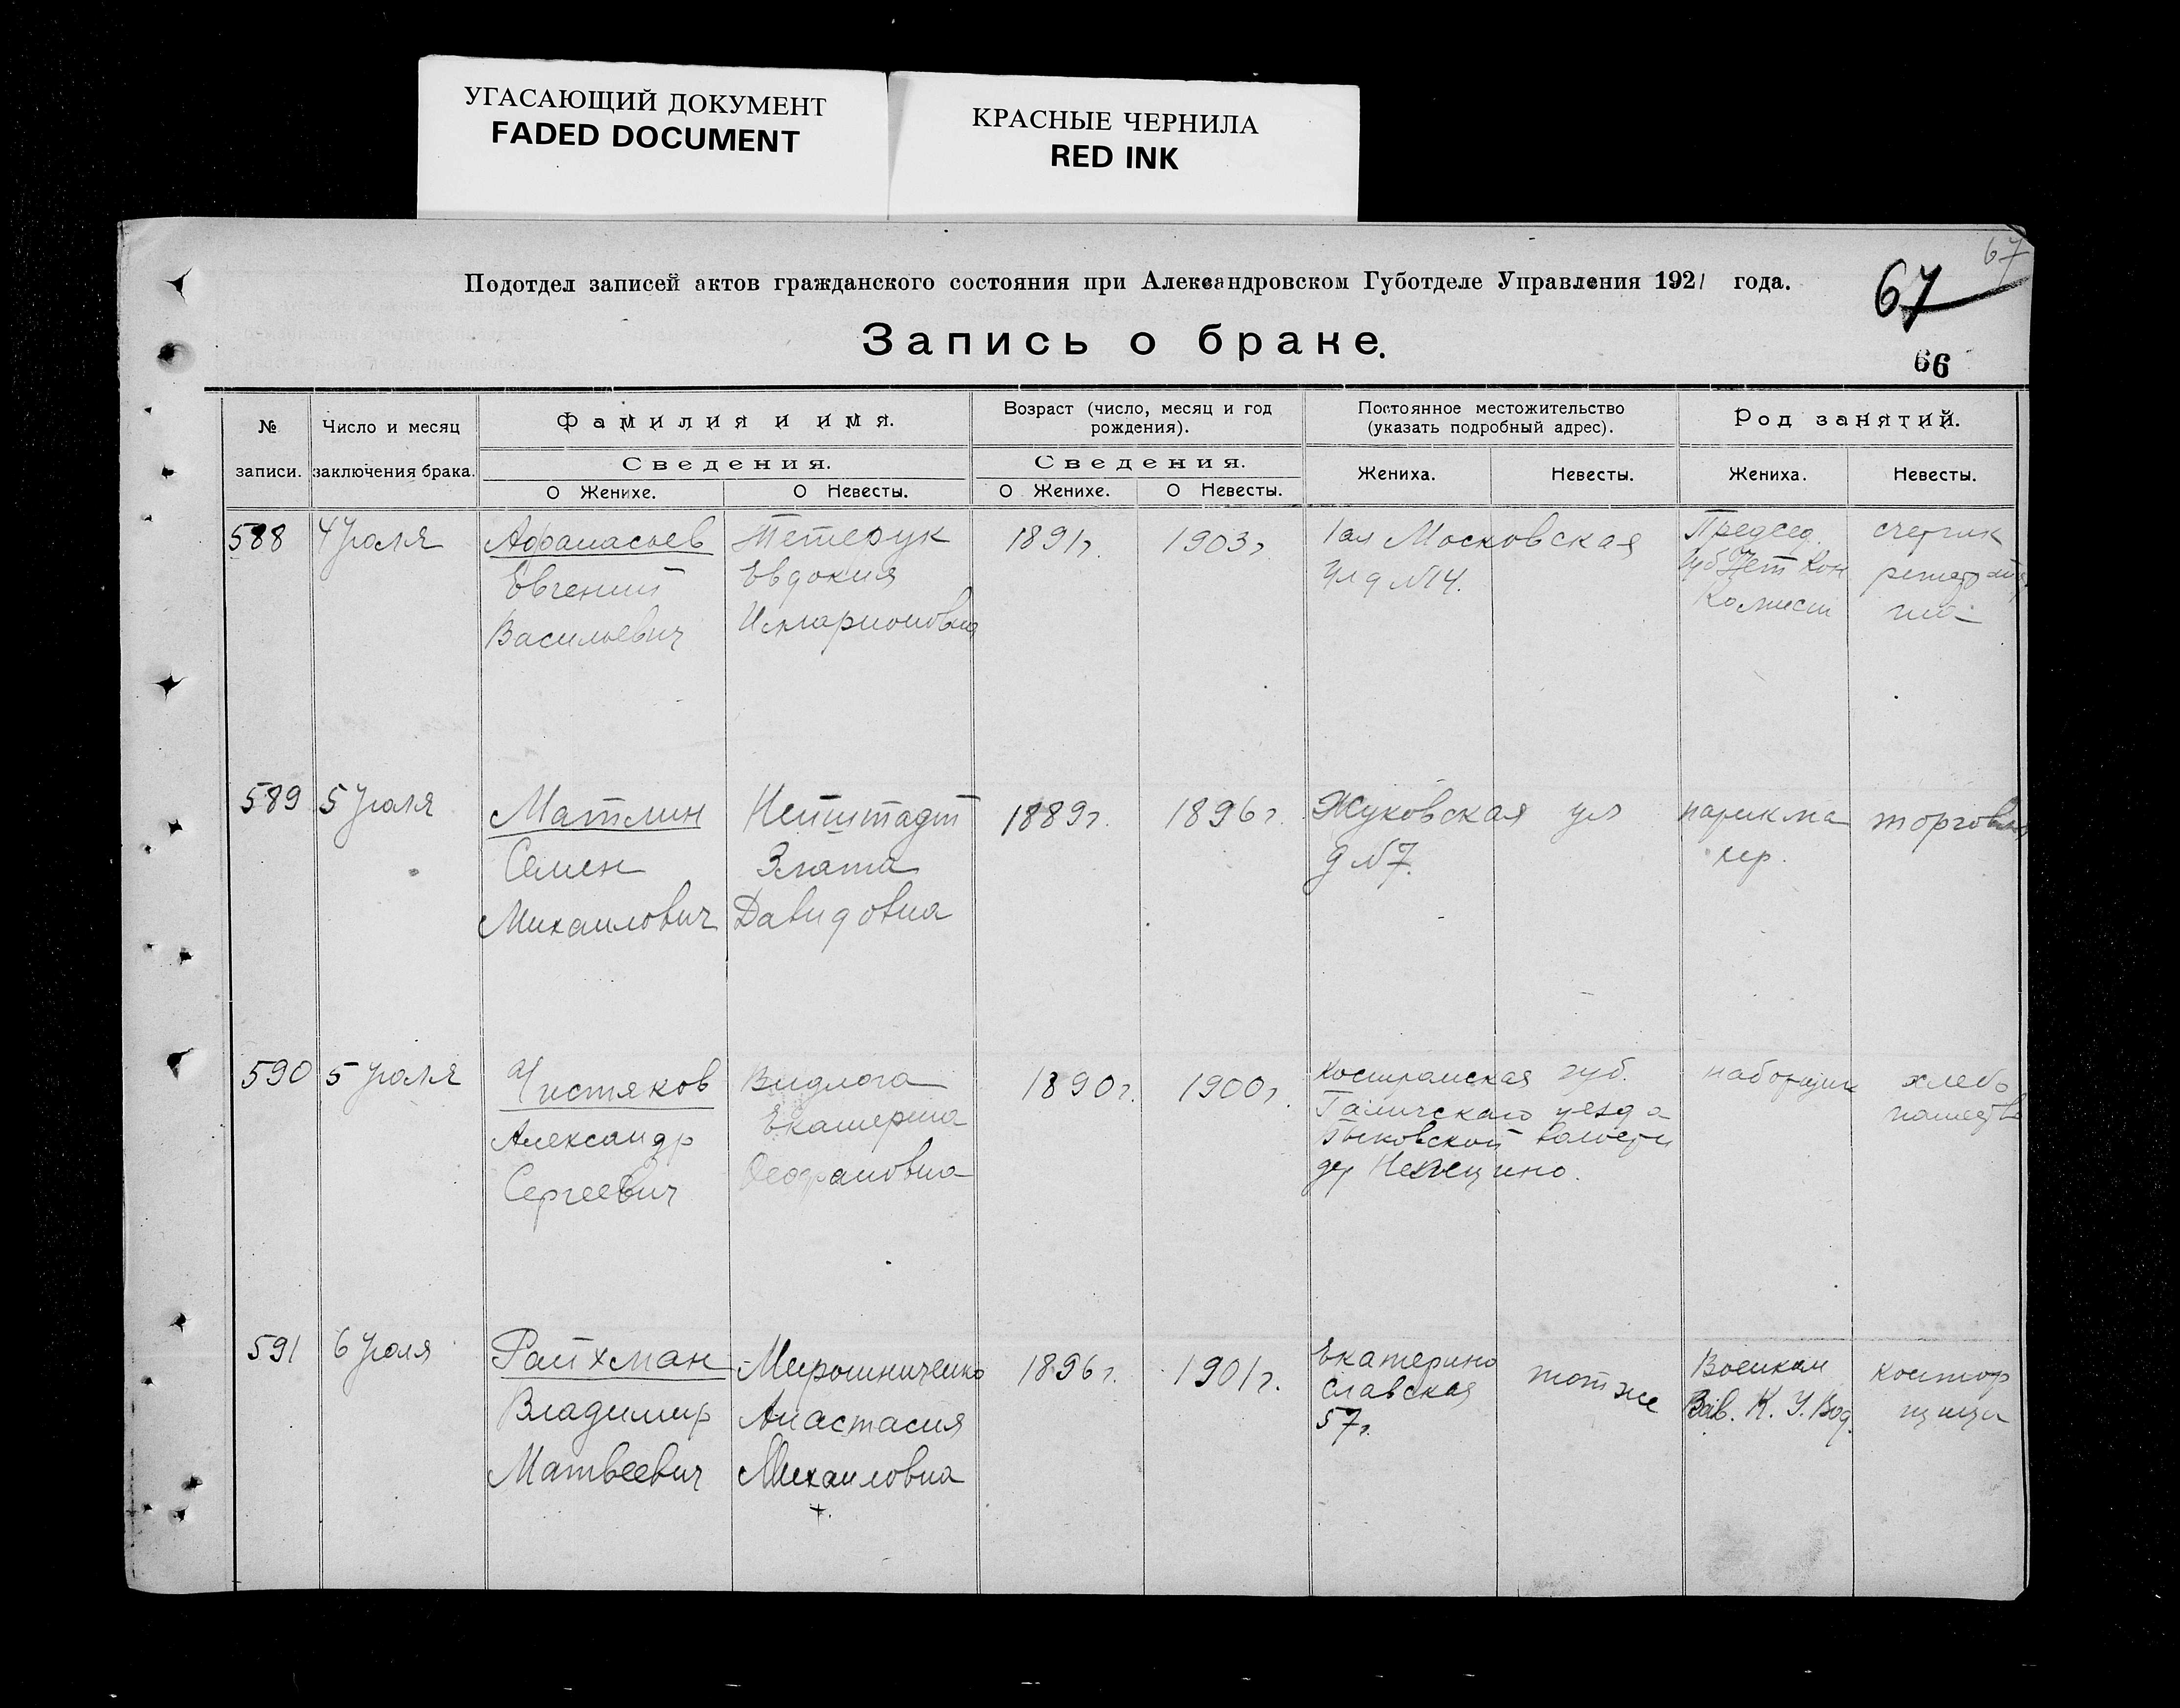 УГАСАЮЩИЙ ДОКУМЕНТ
FADED DOCUMENT
КРАСНЫЕ ЧЕРНИЛА
RED INK
67
Подотдел записей актов гражданского состояния при Александровском Губотделе Управления 1921 года.
67
Запись о браке.
66
№ записи.
Число и месяц заключения брака.
Фамилия и имя.
Сведения.
О Женихе.
О Невесты.
Возраст (число, месяц и год рождения).
Сведения.
О Женихе.
О Невесты.
Постоянное местожительство (указать подробный адрес).
Жениха.
Невесты.
Род занятий.
Жениха.
Невесты.
588
4 Июля
Афанасьев
Евгений
Васильевич
Тетерук
Евдокия
Илларионовна
1891г.
1903г
1ая Московская
ул д №14.
Председ.
Комисси
счетчик
589
5 Июля
Матлин
Семен
Михаилович
Нейштадт
Злата
Давидовна
1889г.
1896г.
Жуковская ул
д №7.
парикма
хер.
торговля
590
5 Июля
Чистяков
Александр
Сергеевич
Видлога
Екатерина
1890г.
1900г.
Костромская губ.
Галичскаго уезда
Быковской волости
дер
наборщик
хлебо
591
6 Июля
Райхман
Владимир
Матвеевич
Мирошниченко
Анастасия
Михаиловна
+.
1896г.
1901г.
Екатерино
славская
57г.
тот же
Военком
К. У. Вод.
контор
щица